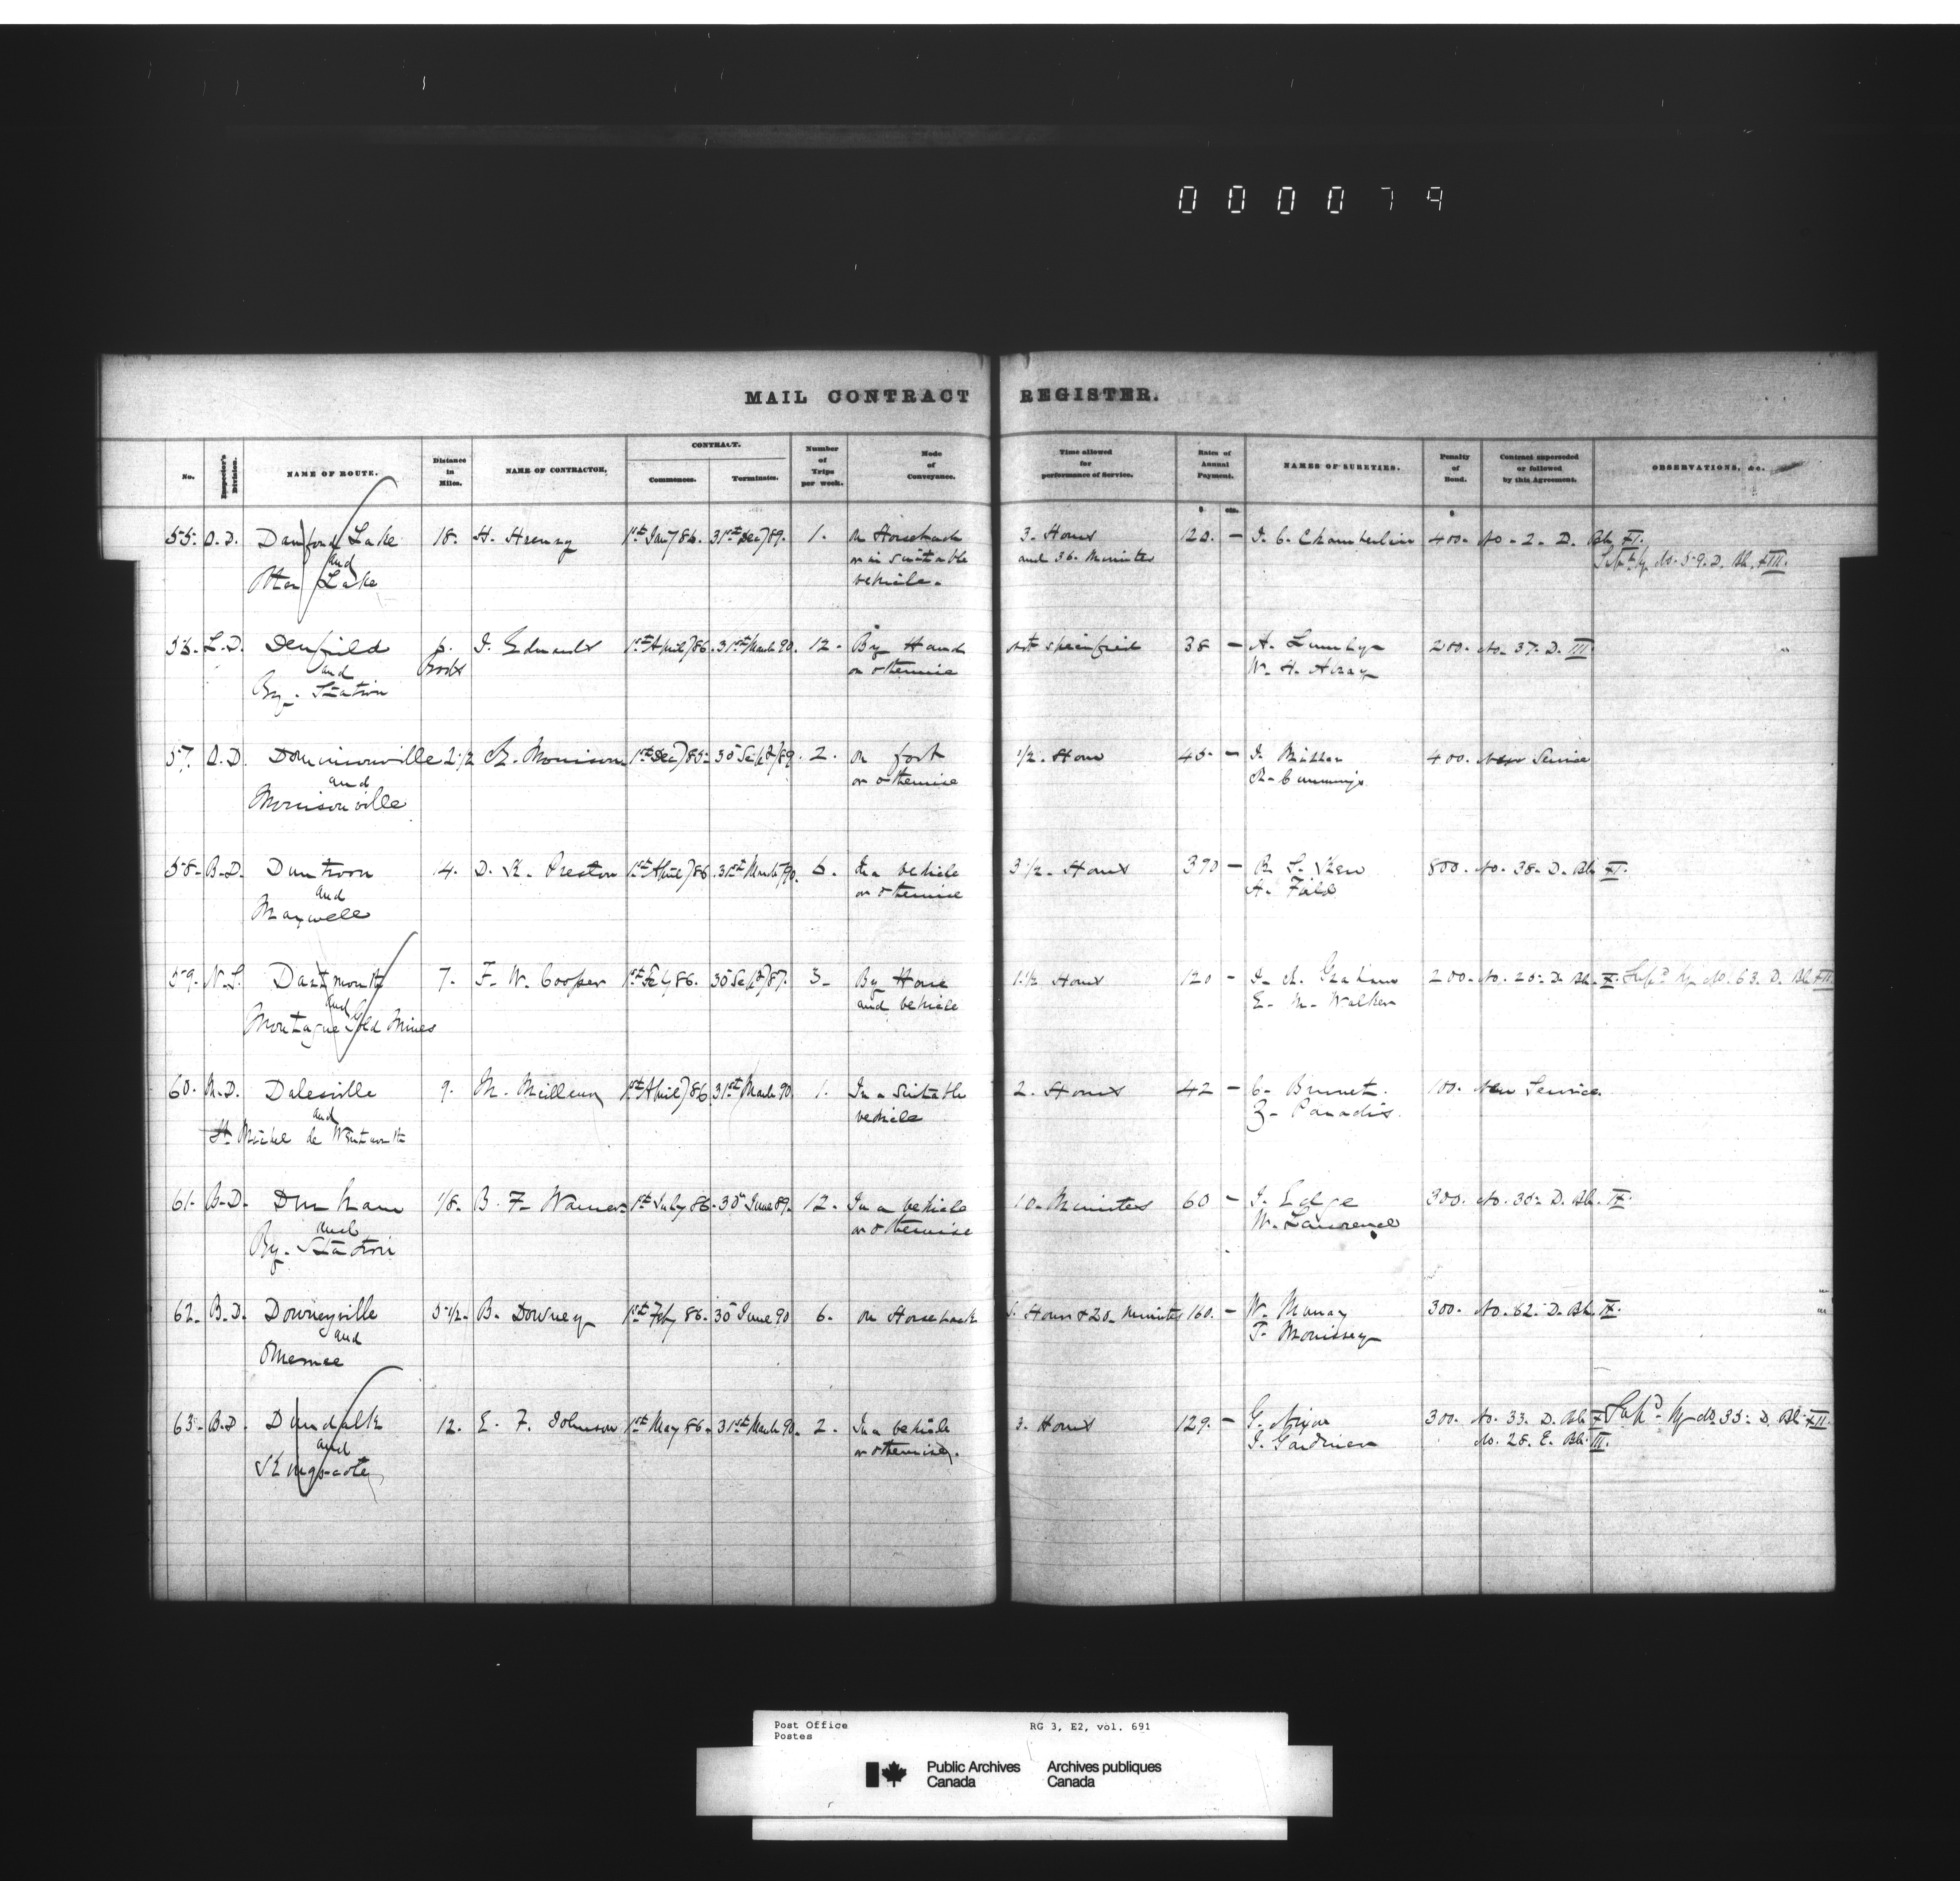 0 0 0 0 7 9
MAIL CONTRACT REGISTER.
No. Inspector's Division. NAME OF ROUTE. Distance in Miles. NAME OF CONTRACTOR. CONTRACT. Commences. Terminates. Number of Trips per week. Mode of Conveyance. Time allowed for performance of Service. Rates of Annual Payment. NAMES OF SURETIES. Penalty of Bond. Contract superseded or followed by this Agreement. OBSERVATIONS, &c.
55. O.D. Danford Lake 18. H. Heeney 1st Jany 86. 31st Dec 89. 1. On Horseback 3. Hours 120. — J. C. Chamberlin 400. No. 2. D. Bk. XI.
and or in suitable and 36. Minutes No. 59. D. Bk. XIII.
Otter Lake vehicle.
56. L.D. Denfield p. J. Edwards 1st April 86. 31st March 90. 12. By Hand Not specified 38 — A. 200. No. 37. D. III
and or otherwise W. H.
Ry. Station
57. O.D. Dominionville 2 1/2 Morrison 1st Dec 85. 30 Sept 89. 2. On foot 1/2. Hour 45. — J. 400. New Service
and or otherwise Cummings
Morrisonville
58. B.D. Duntroon 14. D. K. Preston 1st April 86. 31st March 90. 6. In a vehicle 3 1/2. Hours 390 — 800. No. 38. D. Bk. XI.
and or otherwise
Maxwell
59. N.S. Dartmouth 7. F. W. Cooper 1st Feby 86. 30 Sept 87. 3. By Horse 1 1/2 Hours 120 — Graham 200. No. 20. D. Bk. X. Supd. by No. 63. D. Bk. XII
and and vehicle E. M. Walker
Montague Gold Mines
60. M.D. Dalesville 9. M. Meilleur 1st April 86. 31st March 90. 1. In a suitable 2. Hours 42 — 100. New Service.
and vehicle Z. Paradis.
St. Michel de Wentworth
61. B.D. Durham 1/8. B. F. Warner 1st July 86. 30 June 89. 12. In a vehicle 10. Minutes 60 — J. Edge 300. No. 30. D. Bk. IX.
and or otherwise W. Lawrence
Ry. Station
62. B.D. Downeyville 5 1/2. B. Downey 1st Feby 86. 30 June 90. 6. On Horseback Hours & 20. Minutes 160. — W. Murray 300. No. 62. D. Bk. IX.
and T. Morrissey
Omemee
63. B.D. Dundalk 12. E. F. Johnson 1st May 86. 31st March 90. 2. In a vehicle 3. Hours 129. — G. Nixon 300. No. 33. D. Bk. X Supd. by No. 35. D. Bk. XII.
and or otherwise. J. Gardiner No. 28. E. Bk. III.
Kingscote
Post Office RG 3, E2, vol. 691
Postes
Public Archives Archives publiques
Canada Canada